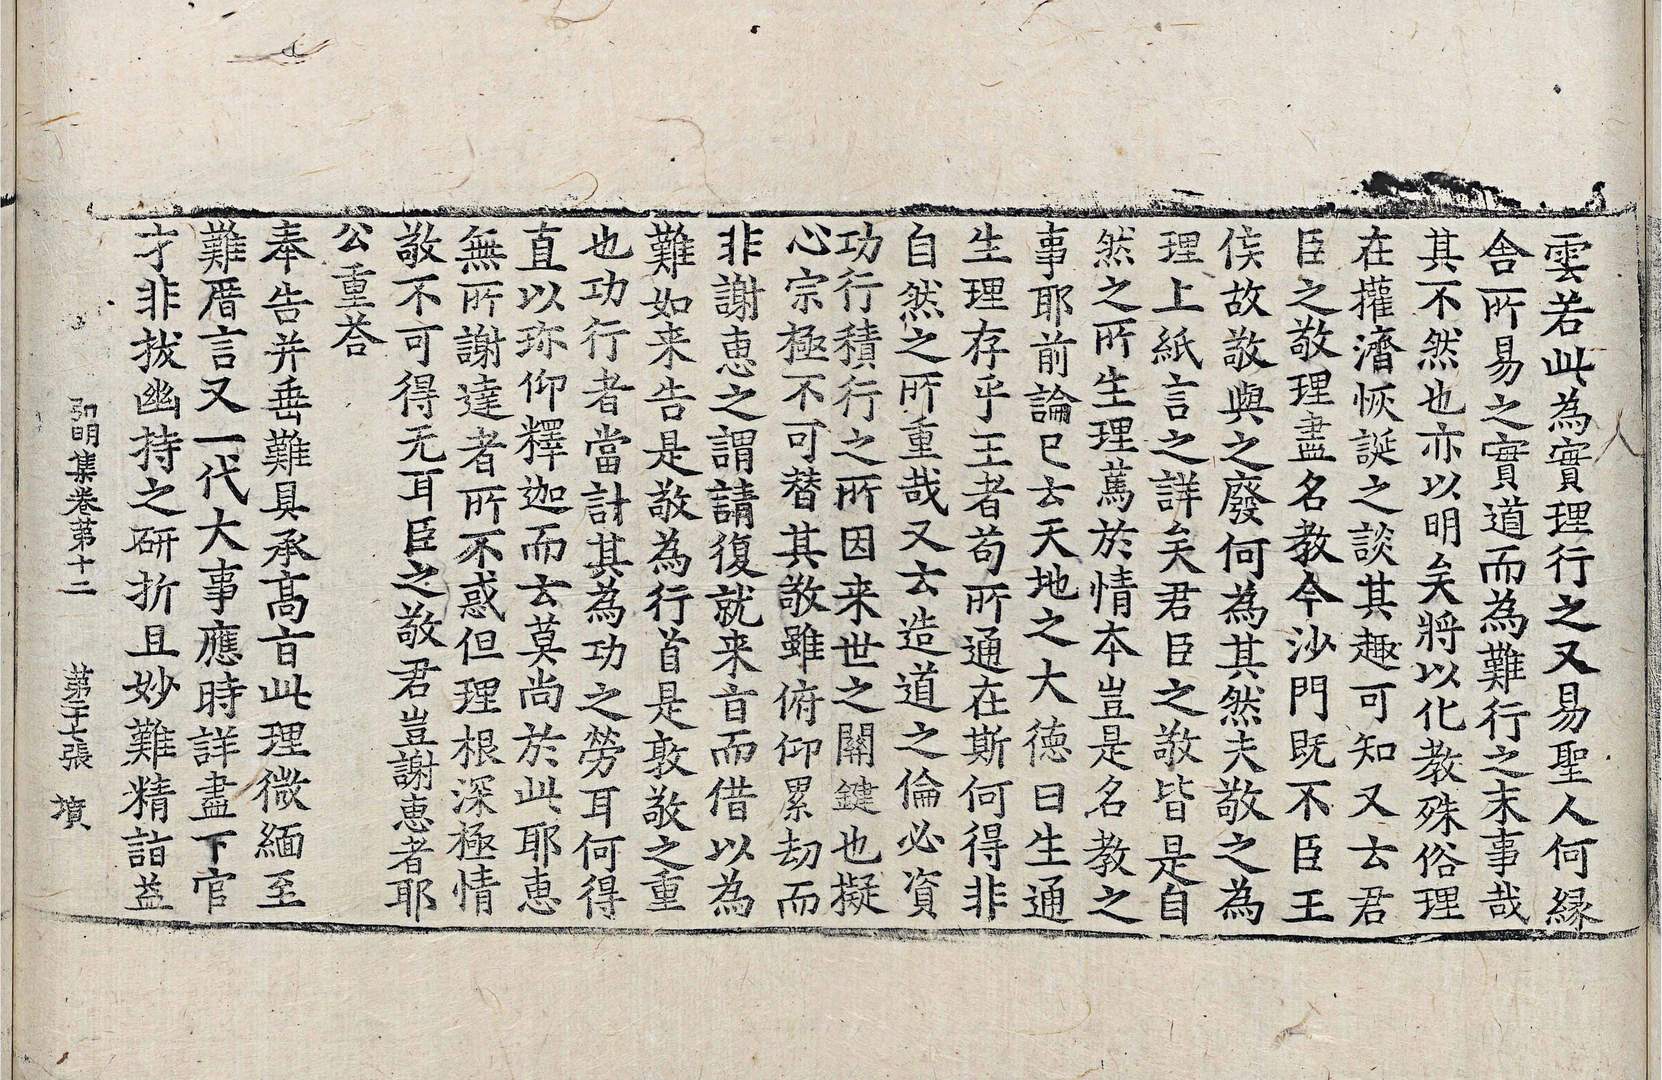 雲若此為實理行之又易聖人何縁
舎所易之實道而為難行之末事哉
其不然也亦以明矣將以化教殊俗理
在擢濟恢誕之談其趣可知又云君
臣之敬理盡名教今沙門既不臣王
侯故敬與之廢何為其然夫敬之為
理上紙言之詳矣君臣之敬皆是自
然之所生理萬於情本豈是名教之
事耶前論已云天地之大德曰生通
生理存乎王者苟所通在斯何得非
自然之所重哉又云造道之倫必資
功行積行之所因来世之關鍵也擬
心宗極不可替其敬雖俯仰累劫而
非謝惠之謂請復就来旨而借以為
難如来告是敬為行首是敦敬之重
也功行者當計其為功之勞耳何得
直以珎仰釋迦而云莫尚於此耶惠
無所謝達者所不惑但理根深極情
敬不可得无耳臣之敬君豈謝惠者耶
公重荅
奉告并垂難具承髙旨此理微緬至
難厝言又一代大事應時詳盡下官
才非拔幽持之研折且妙難精詣益
弘明集卷第十二　第二十七張　墳